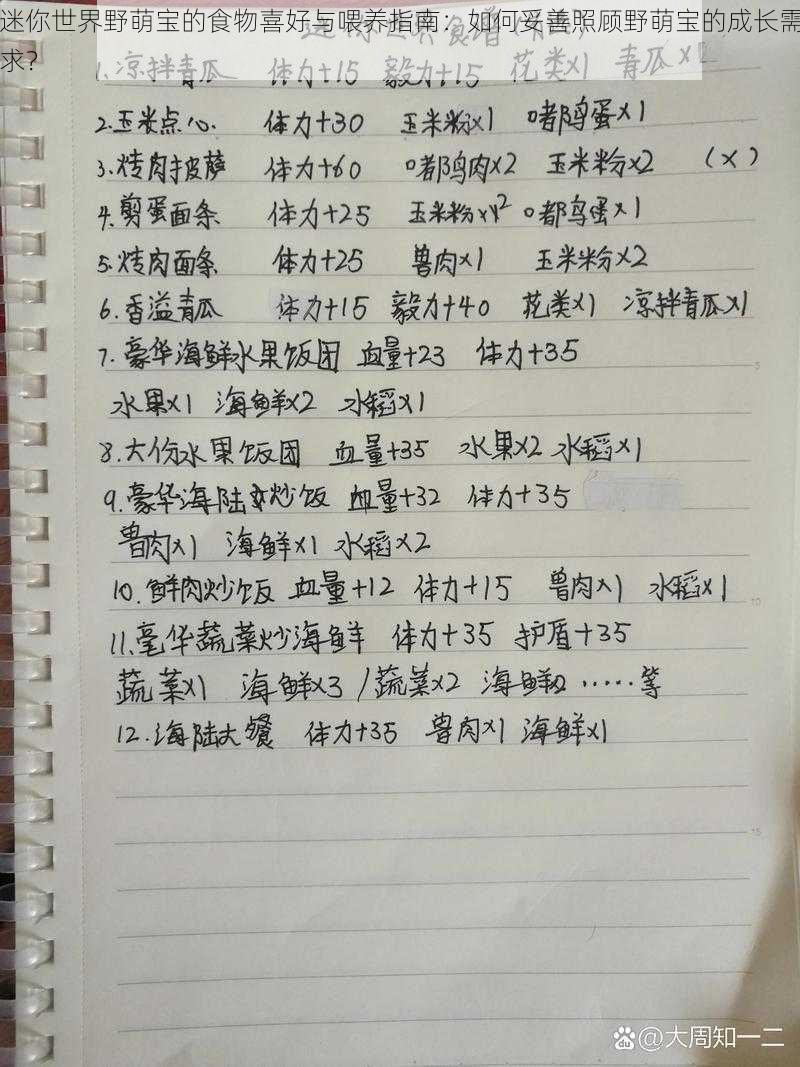 迷你世界野萌宝的食物喜好与喂养指南：如何妥善照顾野萌宝的成长需
求？
1.凉拌青瓜 体力+15 毅力+15 花类x1 青瓜x2
2.玉米点心. 体力+30 玉米粉x1 嘟鸟蛋x1
3.烤肉披萨 体力+60 嘟鸟肉x2 玉米粉x2 (x)
4.剪蛋面条 体力+25 玉米粉x2 嘟鸟蛋x1
5.烤肉面条 体力+25 兽肉x1 玉米粉x2
6.香溢青瓜 体力+15 毅力+40 花类x1 凉拌青瓜x1
7.豪华海鲜水果饭团 血量+23 体力+35
水果x1 海鲜x2 水稻x1
8.大份水果饭团 血量+35 水果x2 水稻x1
9.豪华海陆炒饭 血量+32 体力+35
兽肉x1 海鲜x1 水稻x2
10.鲜肉炒饭 血量+12 体力+15 兽肉x1 水稻x1
11.毫华蔬菜炒海鲜 体力+35 护盾+35
蔬菜x1 海鲜x3 /蔬菜x2 海鲜x2 ......等
12.海陆大餐 体力+35 兽肉x1 海鲜x1
5
10
15
@大周知一二